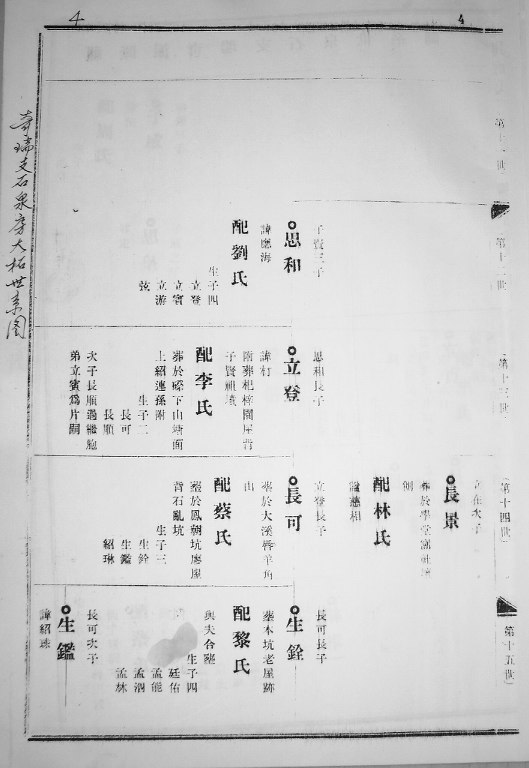 4
4
第十一世
第十二世
思和
子賢三子
諱應海
配劉氏
生子四
立登
立賓
立游
立弦
第十三世
立登
思和長子
諱朾
配李氏
葬於磜下山塘面
上紹連孫附
生子二
長可
長順
次子長順過繼胞
弟立賓爲片嗣
第十四世
長景
立在次子
配林氏
諡慈相
長可
立登長子
葬於大溪唇羊角
山
配蔡氏
葬於鳳朝坑廖屋
背石亂坑
生子三
生銓
生鑑
紹琳
第十五世
生銓
長可長子
葬本坑老屋跡
配黎氏
與夫合葬
生子四
廷佑
孟能
孟泗
孟林
生鑑
長可次子
諱紹珠
奇瑞支石泉房大柘世系图